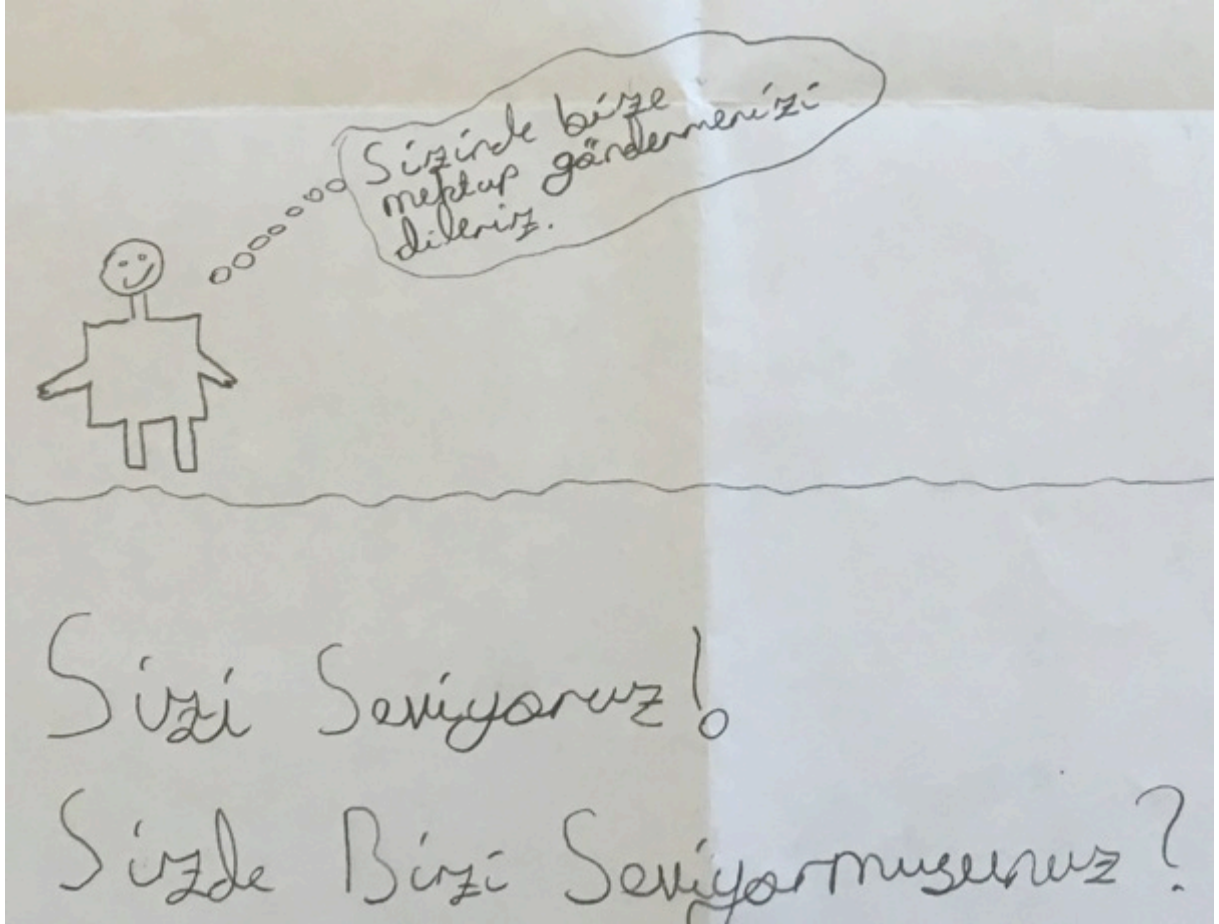 Sizinde bize
mektup göndermenizi
dileriz.
Sizi Seviyoruz!
Sizde Bizi Seviyormusunuz?